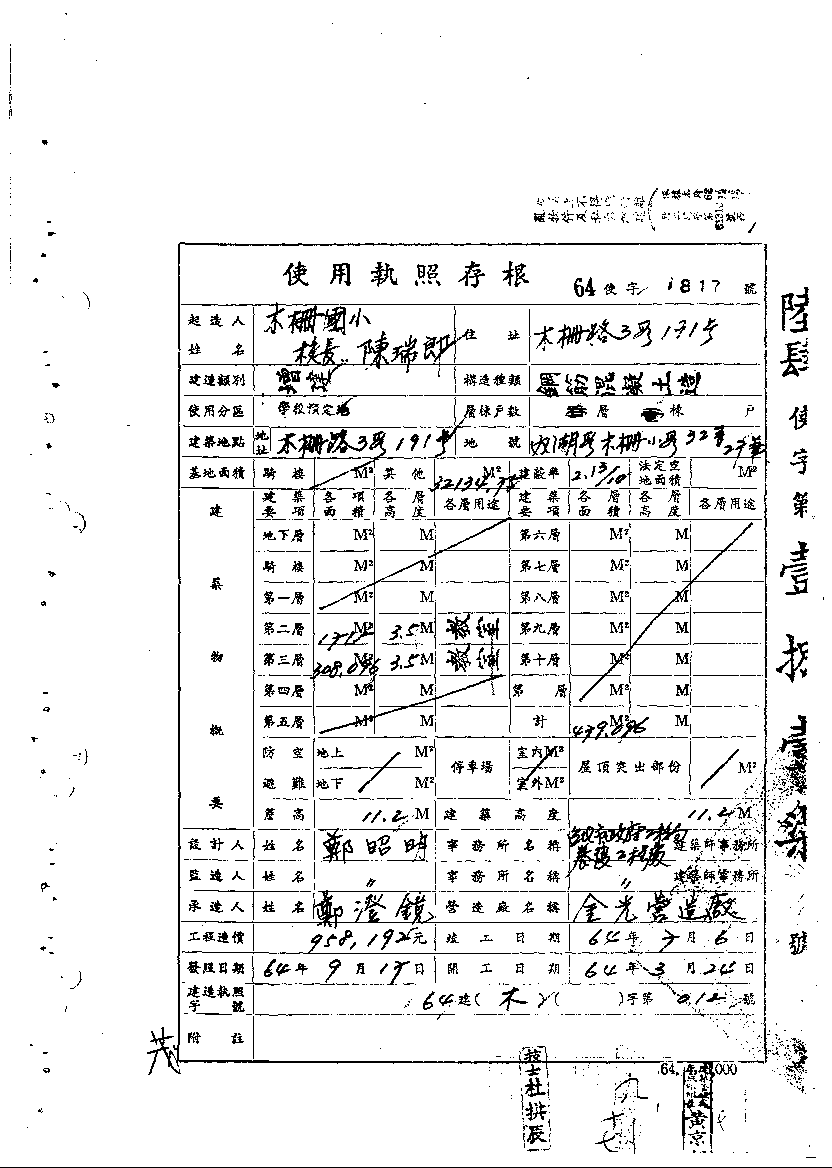 使用執照存根 64使字 1817 號
起造人姓名 木柵國小 校長 陳瑞郎 住址 木柵路3段191號
建造類別 增建 構造種類 鋼筋混凝土造
使用分區 學校預定地 層棟戶數 層 棟 戶
建築地點 地址 木柵路3段191號 地號 內湖段木柵小段32
基地面積 騎樓 M² 其他 32134.75 M² 建蔽率 2.13/10 法定空地面積 M²
建築物概要
建築要項 各項面積 各層高度 各層用途 建築要項 各層面積 各層高度 各層用途
地下層 M² M 第六層 M² M
騎樓 M² M 第七層 M² M
第一層 M² M 第八層 M² M
第二層 M² 3.5M 教室 第九層 M² M
第三層 308.696 M² 3.5M 教室 第十層 M² M
第四層 M² M 第 層 M² M
第五層 M² M 計 439.896 M²
防空避難 地上 M² 停車場 室內M² 屋頂突出部份 M²
地下 M² 室外M²
簷高 11.2 M 建築高度 11.2 M
設計人 姓名 鄭昭明 事務所名稱 建築師事務所
監造人 姓名 〃 事務所名稱 〃 建築師事務所
承造人 姓名 鄭澄鏡 營造廠名稱 金光營造廠
工程造價 958,192元 竣工日期 64年 7月 6日
發照日期 64年 9月 17日 開工日期 64年 3月 24日
建造執照字號 64建(木)( )字第 012 號
附註
陸肆使字第壹捌壹柒號
技士杜拱辰
九
十七
64.
000
黃京